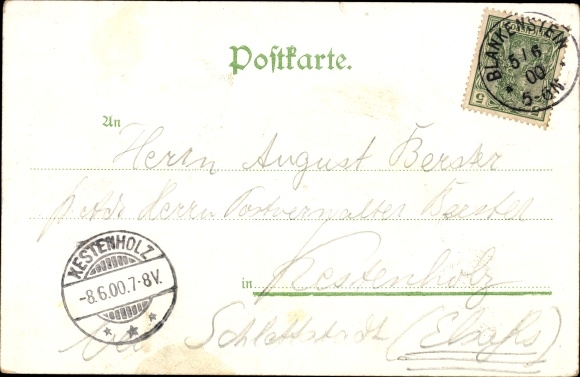 Postkarte.
BLANKENSTEIN
5/6
00
5-6N.
5
An
Herrn August Berster
Herrn Postverwalter Berster
in Kestenholz
KESTENHOLZ
-8.6.00.7-8V.
Schlettstadt (Elsaß)